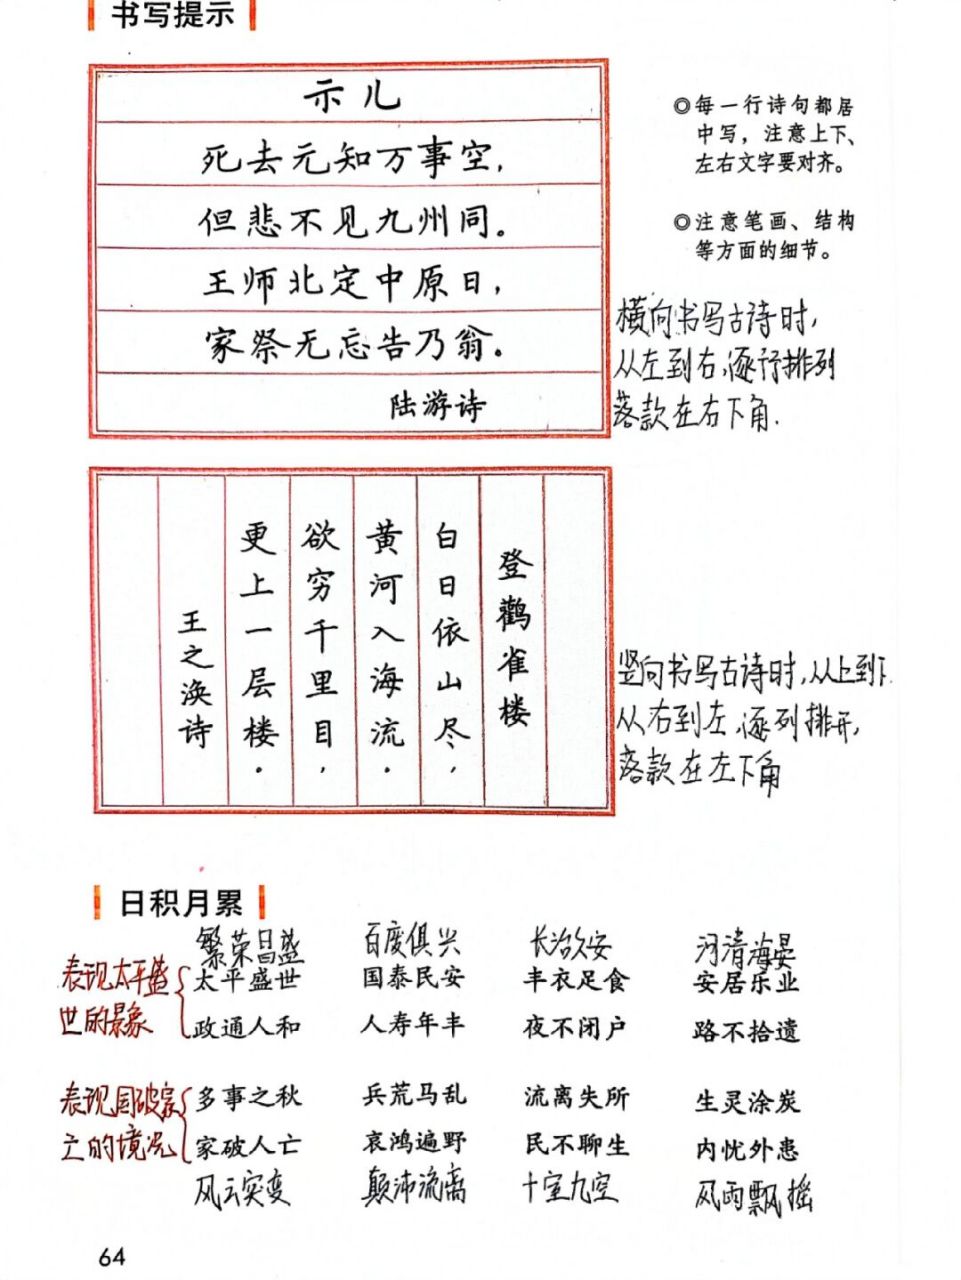 书写提示
示儿
死去元知万事空，
但悲不见九州同。
王师北定中原日，
家祭无忘告乃翁。
陆游诗
◎每一行诗句都居
中写，注意上下、
左右文字要对齐。
◎注意笔画、结构
等方面的细节。
横向书写古诗时，
从左到右，逐行排列
落款在右下角.
登鹳雀楼
白日依山尽，
黄河入海流。
欲穷千里目，
更上一层楼。
王之涣诗
竖向书写古诗时，从上到下
从右到左，逐列排开，
落款在左下角
日积月累
繁荣昌盛 百废俱兴 长治久安 河清海晏
表现太平盛
世的景象
太平盛世 国泰民安 丰衣足食 安居乐业
政通人和 人寿年丰 夜不闭户 路不拾遗
表现国破家
亡的境况
多事之秋 兵荒马乱 流离失所 生灵涂炭
家破人亡 哀鸿遍野 民不聊生 内忧外患
风云突变 颠沛流离 十室九空 风雨飘摇
64